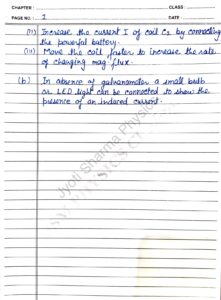 CHAPTER :
CLASS :
PAGE NO. : 2
DATE :
(ii) Increase the current I of coil C2 by connecting
the powerful battery.
(iii) Move the coil faster to increase the rate
of changing mag. flux.
(b) In absence of galvanometer a small bulb
or LED light can be connected to show the
presence of an induced current.
Jyoti Sharma Physics